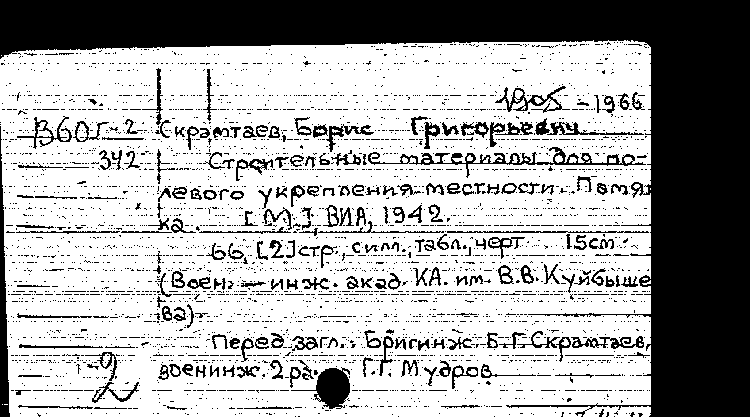 1905 - 1966
В60г-2 Скрамтаев, Борис Григорьевич
342 Строительные материалы для по-
левого укрепления местности. Памят
ка. [М.], ВИА, 1942.
66, [2] стр., с илл., табл., черт. 15см.
(Воен. - инж. акад. КА. им. В.В. Куйбыше
ва).
Перед загл.: Бригинж. Б.Г. Скрамтаев,
военинж. 2 Г.Г. Мудров.
2